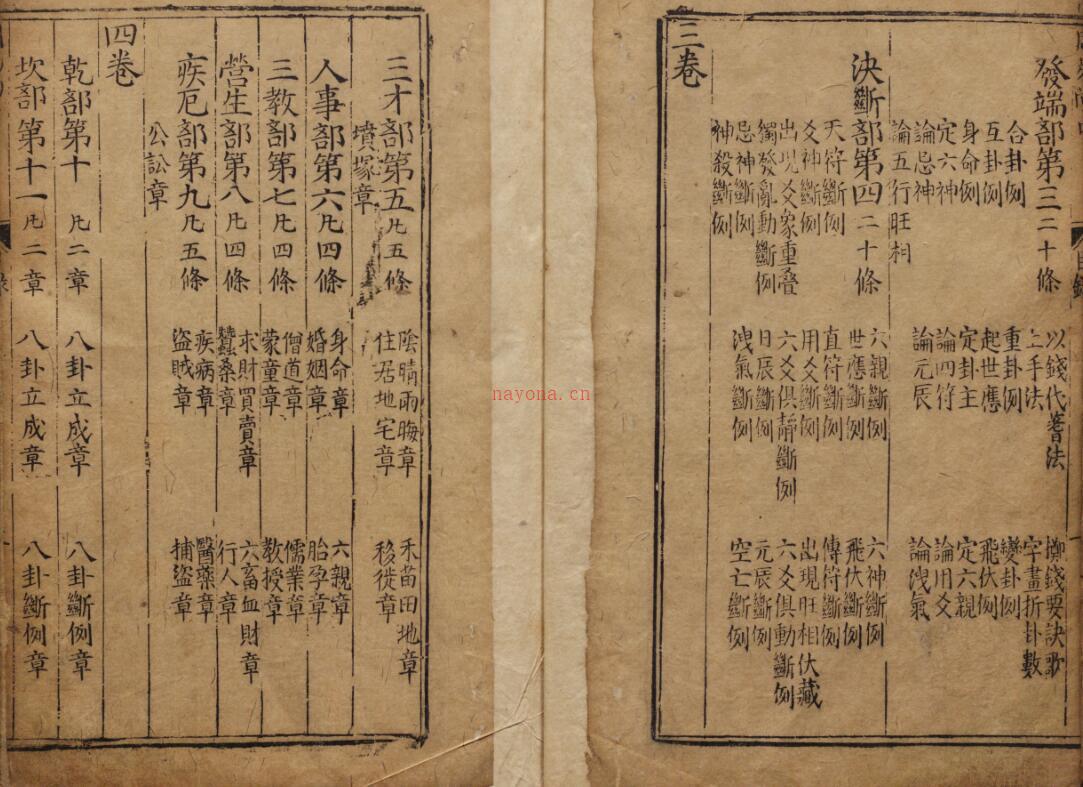 發端部第三二十條 以錢代蓍法 擲錢要訣歌
上手法 字畫折卦數
合卦例 重卦例 變卦例
互卦例 起世應 飛伏例
身命例 定卦主 定六親
定六神 論四符 論用爻
論忌神 論元辰 論洩氣
論五行旺相
決斷部第四二十條 六親斷例 六神斷例
世應斷例 飛伏斷例
天符斷例 直符斷例 傳符斷例
爻神斷例 用爻斷例 出現旺相伏藏
出現爻象重叠 六爻俱靜斷例 六爻俱動斷例
獨發亂動斷例 日辰斷例 元辰斷例
忌神斷例 洩氣斷例 空亡斷例
神殺斷例
三卷
三才部第五凡五條 陰晴雨晦章 禾苗田地章
墳塚章 住居地宅章 移徙章
人事部第六凡四條 身命章 六親章
婚姻章 胎孕章
三教部第七凡四條 僧道章 儒業章
蒙童章 教授章
營生部第八凡四條 求財買賣章 六畜血財章
蠶桑章 行人章
疾厄部第九凡五條 疾病章 醫藥章
公訟章 盜賊章 捕盜章
四卷
乾部第十 凡二章 八卦立成章 八卦斷例章
坎部第十一凡二章 八卦立成章 八卦斷例章
nayona.cn